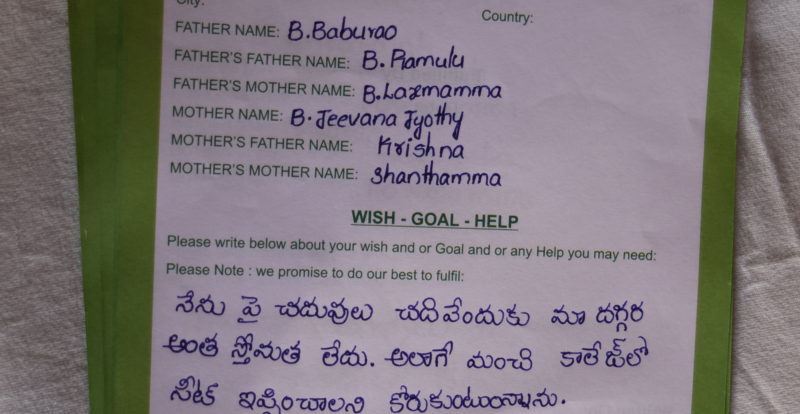 City:
Country:
FATHER NAME: B.Baburao
FATHER'S FATHER NAME: B. Ramulu
FATHER'S MOTHER NAME: B.Laxmamma
MOTHER NAME: B. Jeevana Jyothy
MOTHER'S FATHER NAME: Krishna
MOTHER'S MOTHER NAME: Shanthamma
WISH - GOAL - HELP
Please write below about your wish and or Goal and or any Help you may need:
Please Note : we promise to do our best to fulfil:
నేను పై చదువులు చదివేందుకు మా దగ్గర
అంత స్తోమత లేదు. అలాగే మంచి కాలేజ్‌లో
సీట్ ఇప్పించాలని కోరుకుంటున్నాను.